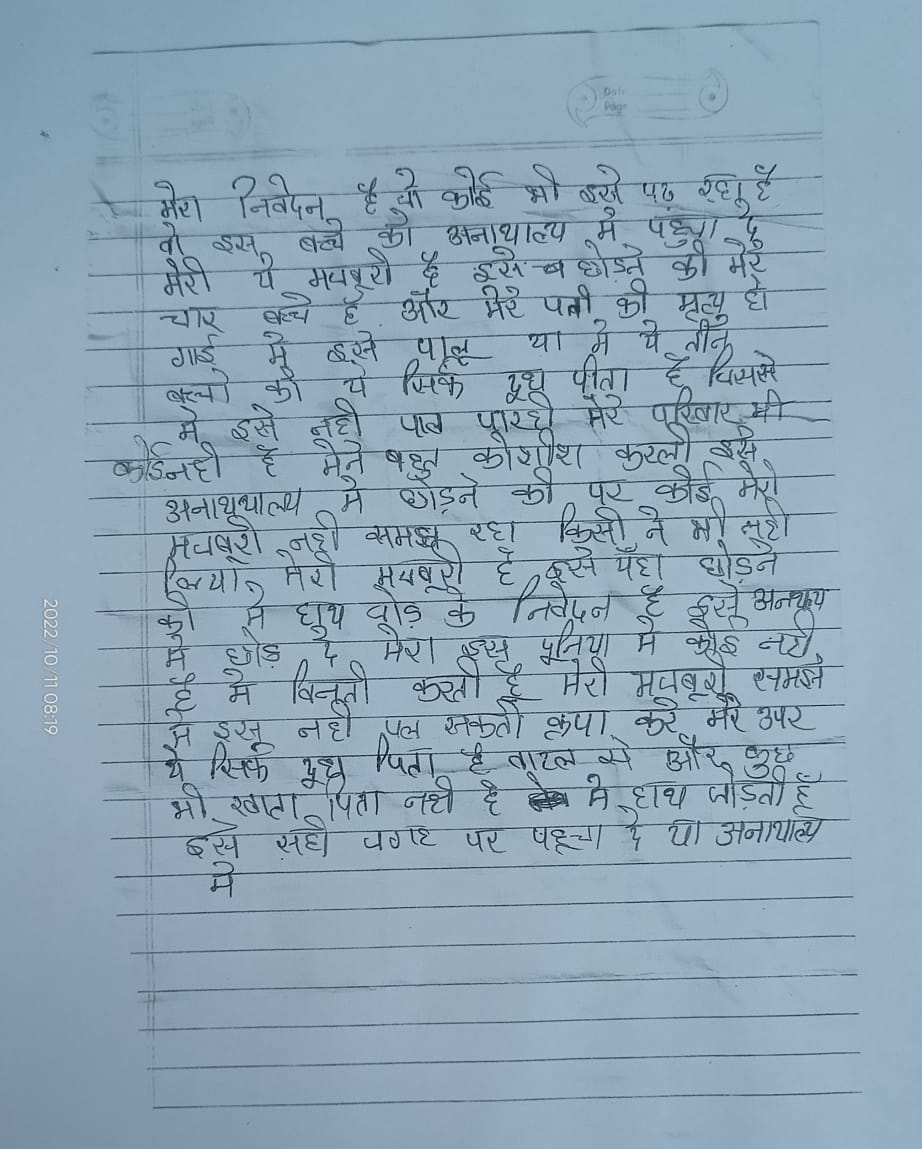 Date
Page
मेरा निवेदन है जो कोई भी इसे पढ़ रहा है
वो इस बच्चे को अनाथाल्य मे पहुचा दे
मेरी ये मजबूरी है इसे छोड़ने की मेरे
चार बच्चे है और मेरे पती की मृत्यु हो
गई मे इसे पालू या मे ये तीन
बच्चो को ये सिर्फ दूध पीता है जिससे
मे इसे नही पाल पारही मेरे परिवार मी
कोई नही है मेने बहुत कोशीश करली इसे
अनाथथाल्य मे छोड़ने की पर कोई मेरी
मजबूरी नही समझ रहा किसी ने भी नही
लिया, मेरी मजबूरी है इसे यहा छोड़ने
की मे हाथ जोड़ के निवेदन है इसे अनथाय
मे छोड़ दे मेरा इस दूनिया मे कोइ नही
है मे विनती करती हूँ मेरी मजबूरी समझे
मे इसे नही पल सकती कृपा करे मेरे उपर
ये सिर्फ दूध पिता है बाटल से और कुछ
भी खाता पिता नही है मे हाथ जोड़ती हूँ
इसे सही जगह पर पहूचा दे या अनाथाल्य
मे
2022/10/11 08:19